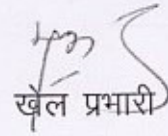 खेल प्रभारी